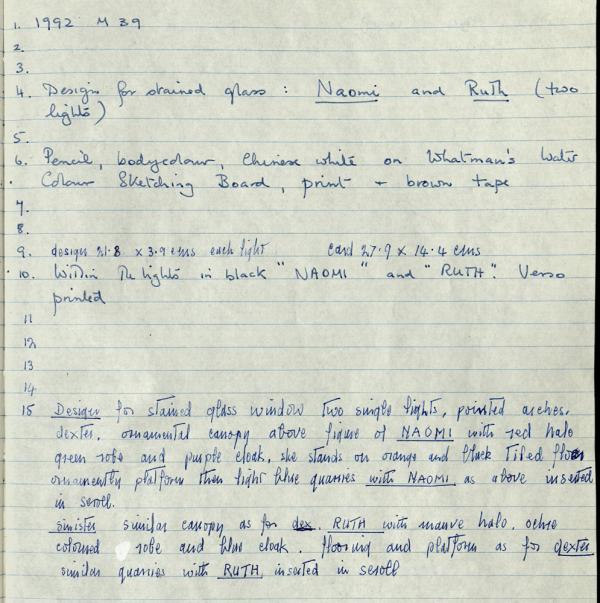 1. 1992 M 39
2.
3.
4. Design for stained glass : Naomi and Ruth (two
lights)
5.
6. Pencil, bodycolour, Chinese white on Whatman's Water
Colour Sketching Board, print + brown tape
7.
8.
9. design 21.8 x 3.9 cms each light card 27.9 x 14.4 cms
10. Within the lights in black "NAOMI" and "RUTH". Verso
printed
11
12
13
14
15 Design for stained glass window two single lights, pointed arches.
dexter. ornamental canopy above figure of NAOMI with red halo
green robe and purple cloak, she stands on orange and black tiled floor
ornamently platform then light blue quarries with NAOMI as above inserted
in scroll.
sinister similar canopy as for dex. RUTH with mauve halo, ochre
coloured robe and blue cloak. flooring and platform as for dexter
similar quarries with RUTH inserted in scroll